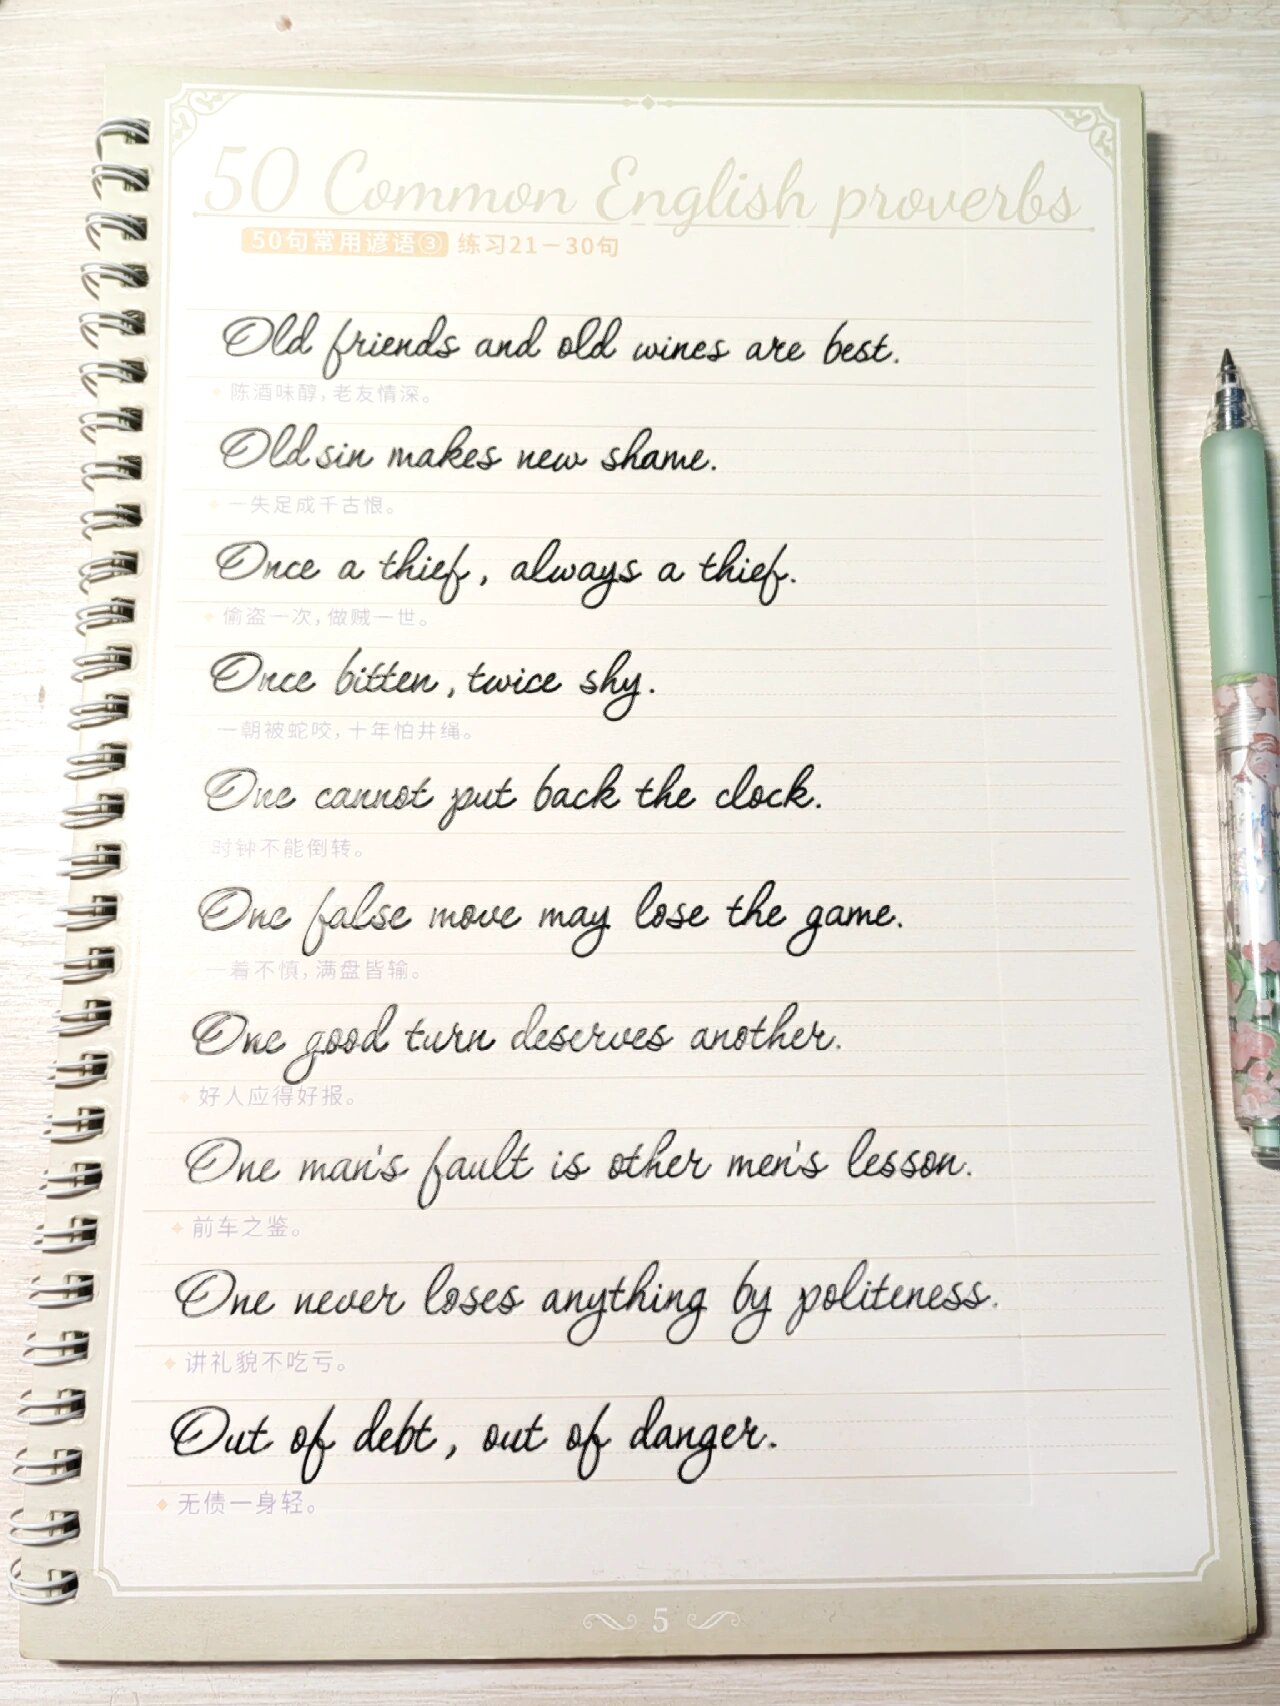 50 Common English proverbs
50句常用谚语③ 练习21-30句
Old friends and old wines are best.
陈酒味醇，老友情深。
Old sin makes new shame.
一失足成千古恨。
Once a thief, always a thief.
偷盗一次，做贼一世。
Once bitten, twice shy.
一朝被蛇咬，十年怕井绳。
One cannot put back the clock.
时钟不能倒转。
One false move may lose the game.
一着不慎，满盘皆输。
One good turn deserves another.
好人应得好报。
One man's fault is other men's lesson.
前车之鉴。
One never loses anything by politeness.
讲礼貌不吃亏。
Out of debt, out of danger.
无债一身轻。
5